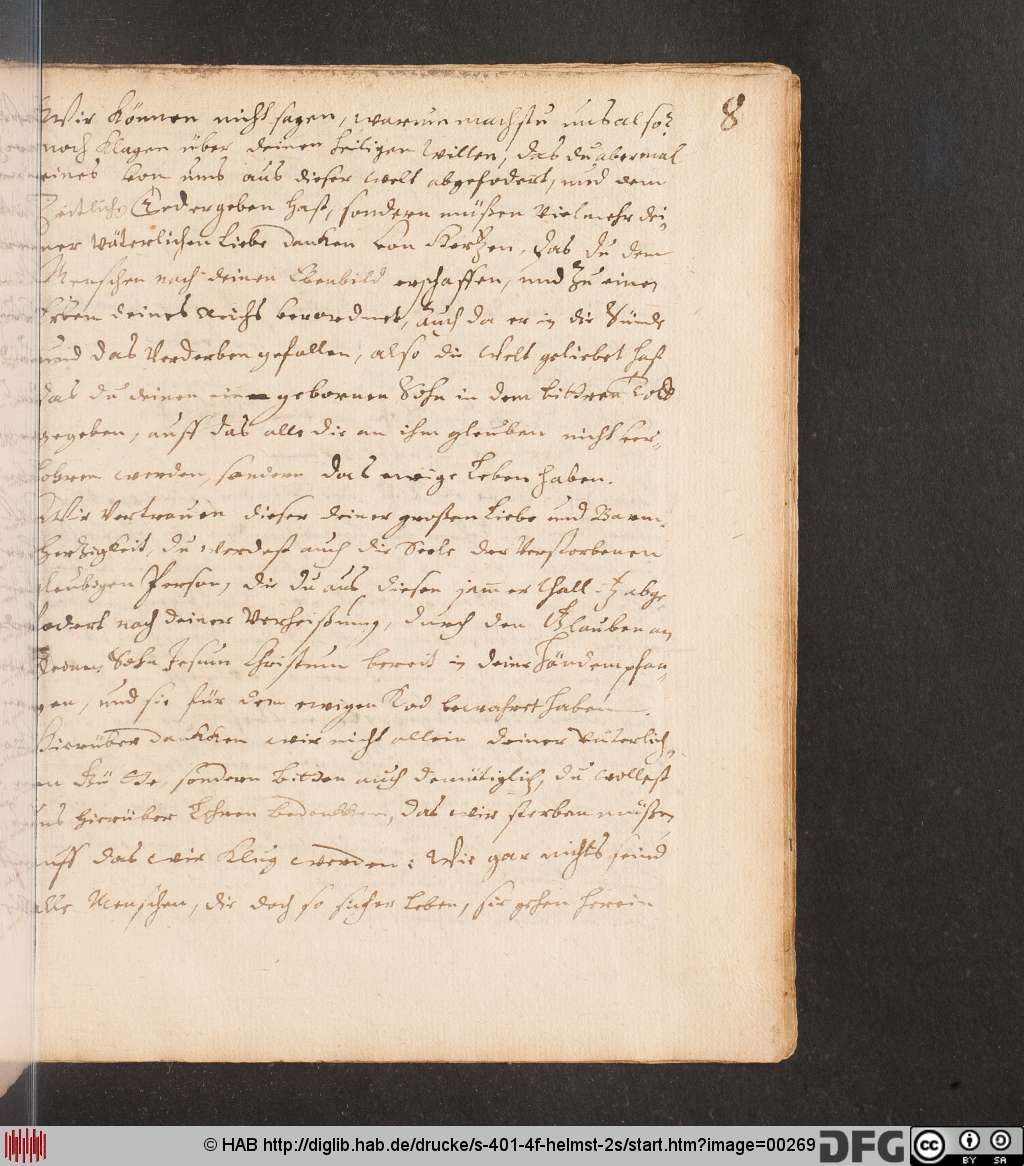 8
Wir können nicht sagen, warum machstu uns also?
noch klagen über deinen heiligen willen, das du abermal
eines von uns aus dieser welt abgefodert, und dem
hast, sondern müßen vielmehr dei,,
ner väterlichen liebe danken von Hertzen, das du dem
Menschen nach deinen Ebenbild erschaffen, und zu einen
Erben deines reichs verordnet, auch da er in die Sünde
und das verderben gefallen, also die welt geliebet hast
das du deinen gebornen Sohn in dem bittren Todt
gegeben, auff das alle die an ihm gleuben nicht ver,,
lohren werden, sondern das ewige leben haben.
Wir vertrauen dieser deiner grosten liebe und Barm,
hertzigkeit, du werdest auch die Seele der verstorbenen
gleubigen Person, die du aus diesen jam̄erthall abge
fodert nach deiner verheißung, durch den Glauben an
deinen Sohn Jesum Christum bereit in deine händ empfan,,
gen, und sie für dem ewigen Tod bewahret haben.
Hierüber danken wir nicht allein deiner väterlich,,
en Gütte, sondern bitten auch demütiglich, du wollest
uns hierüber lehren bedenkken, das wir sterben müßen
auff das wir klug werden: Wie gar nichts seind
alle Menschen, die doch so sicher leben, sie gehen herein
© HAB http://diglib.hab.de/drucke/s-401-4f-helmst-2s/start.htm?image=00269
DFG
CC BY SA